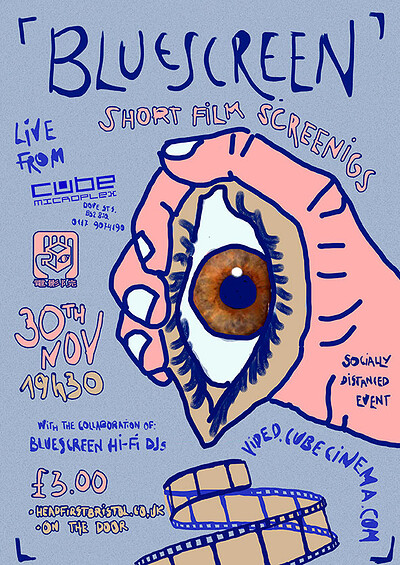 BLUESCREEN
SHORT FILM SCREENIGS
LIVE
FROM
CUBE
MICROPLEX
DOVE ST S.
BS2 8JD
0117 9074190
30TH
NOV
19H30
SOCIALLY
DISTANCED
EVENT
WITH THE COLLABORATION OF:
BLUESCREEN HI-FI DJs
VIDEO.CUBECINEMA.COM
£3.00
• HEADFIRSTBRISTOL.CO.UK
• ON THE DOOR